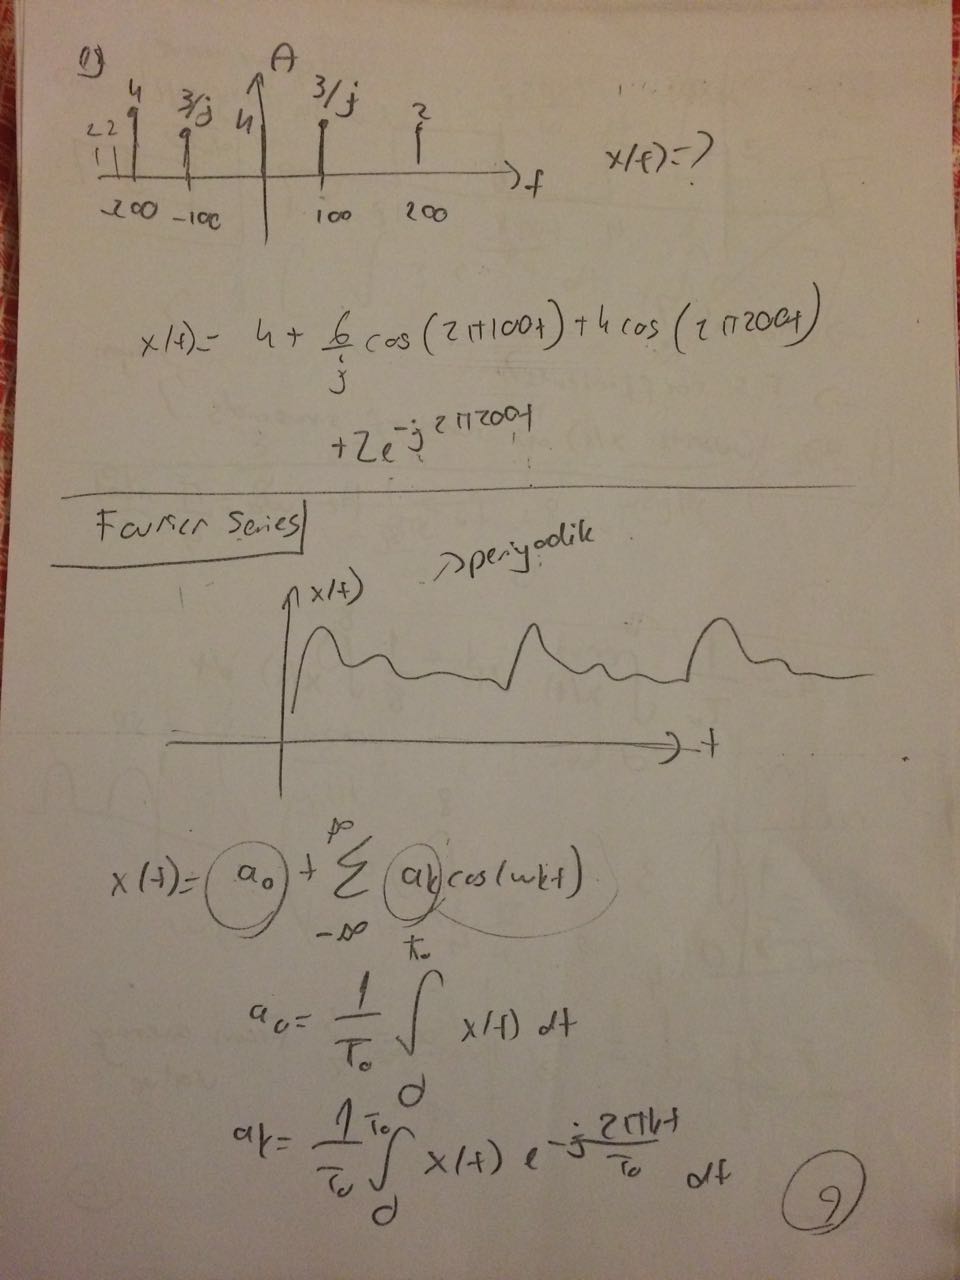 1)
A
4 3/j 4 3/j 2
2 2
-200 -100 100 200 f
x(t)=?
x(t)= 4 + 6/j cos(2π100t) + 4 cos(2π200t)
+2e^-j2π200t
Fourier Series
→periyodik
x(t)
t
x(t)= a₀ + ∞ Σ -∞ ak cos(wkt)
a₀= 1/T₀ ∫ T₀ 0 x(t) dt
ak= 1/T₀ ∫ T₀ 0 x(t) e^-j 2πkt/T₀ dt
9